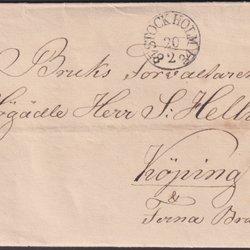 STOCKHOLM
20
2
Bruks Förvaltaren
Högädle Herr S. Hells
Köping
&
Terna Bru